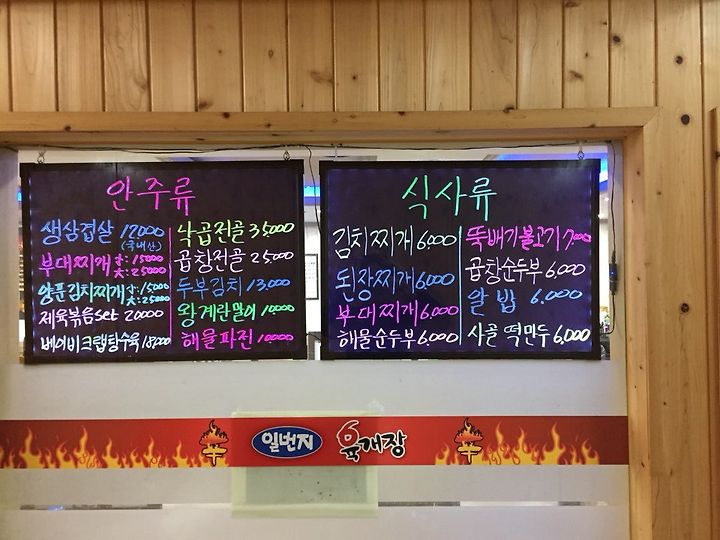 안주류
생삼겹살 12000
(국내산)
부대찌개 小: 15000
大: 25000
양푼김치찌개 小: 15000
大: 25000
제육볶음set 20000
베이비크랩탕수육 18000
낙곱전골 35000
곱창전골 25000
두부김치 13,000
왕계란말이 10,000
해물파전 10,000
식사류
김치찌개 6,000
된장찌개 6,000
부대찌개 6,000
해물순두부 6,000
뚝배기불고기 7,000
곱창순두부 6,000
알밥 6.000
사골 떡만두 6,000
일번지 육개장